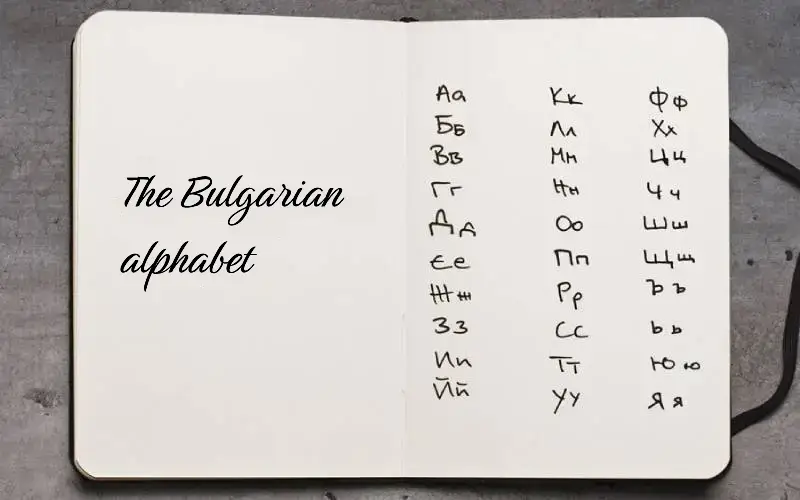 The Bulgarian
alphabet
Аа
Бб
Вв
Гг
Дд
Ее
Жж
Зз
Ии
Йй
Кк
Лл
Мм
Нн
Оо
Пп
Рр
Сс
Тт
Уу
Фф
Хх
Цц
Чч
Шш
Щщ
Ъъ
Ьь
Юю
Яя